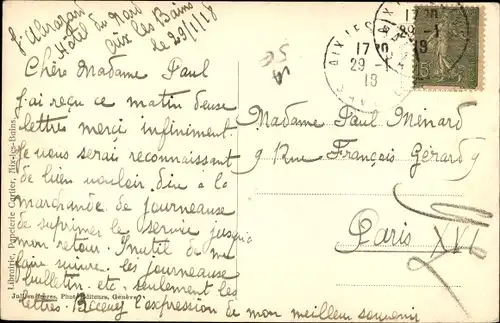 Hotel du Nord
Aix les Bains
le 29/1/18
Chère Madame Paul
J'ai reçu ce matin deux
lettres merci infiniment
Je vous serais reconnaissant
de bien vouloir dire à la
marchande de journeause
de suprimer le servise jusqu'a
mon retour. Inutil de me
faire suivre. les journeause
bulletin. etc. seulement les
lettres. Recevez l'expression de mon meilleur souvenir
17
29 -1
18
17
29 -1
18
15
Madame Paul Ménard
9 Rue François Gérard 9
Paris XVI
Librairie, Papeterie Cartier, Aix-les-Bains.
Jullien frères, Phot.-Editeurs, Genève